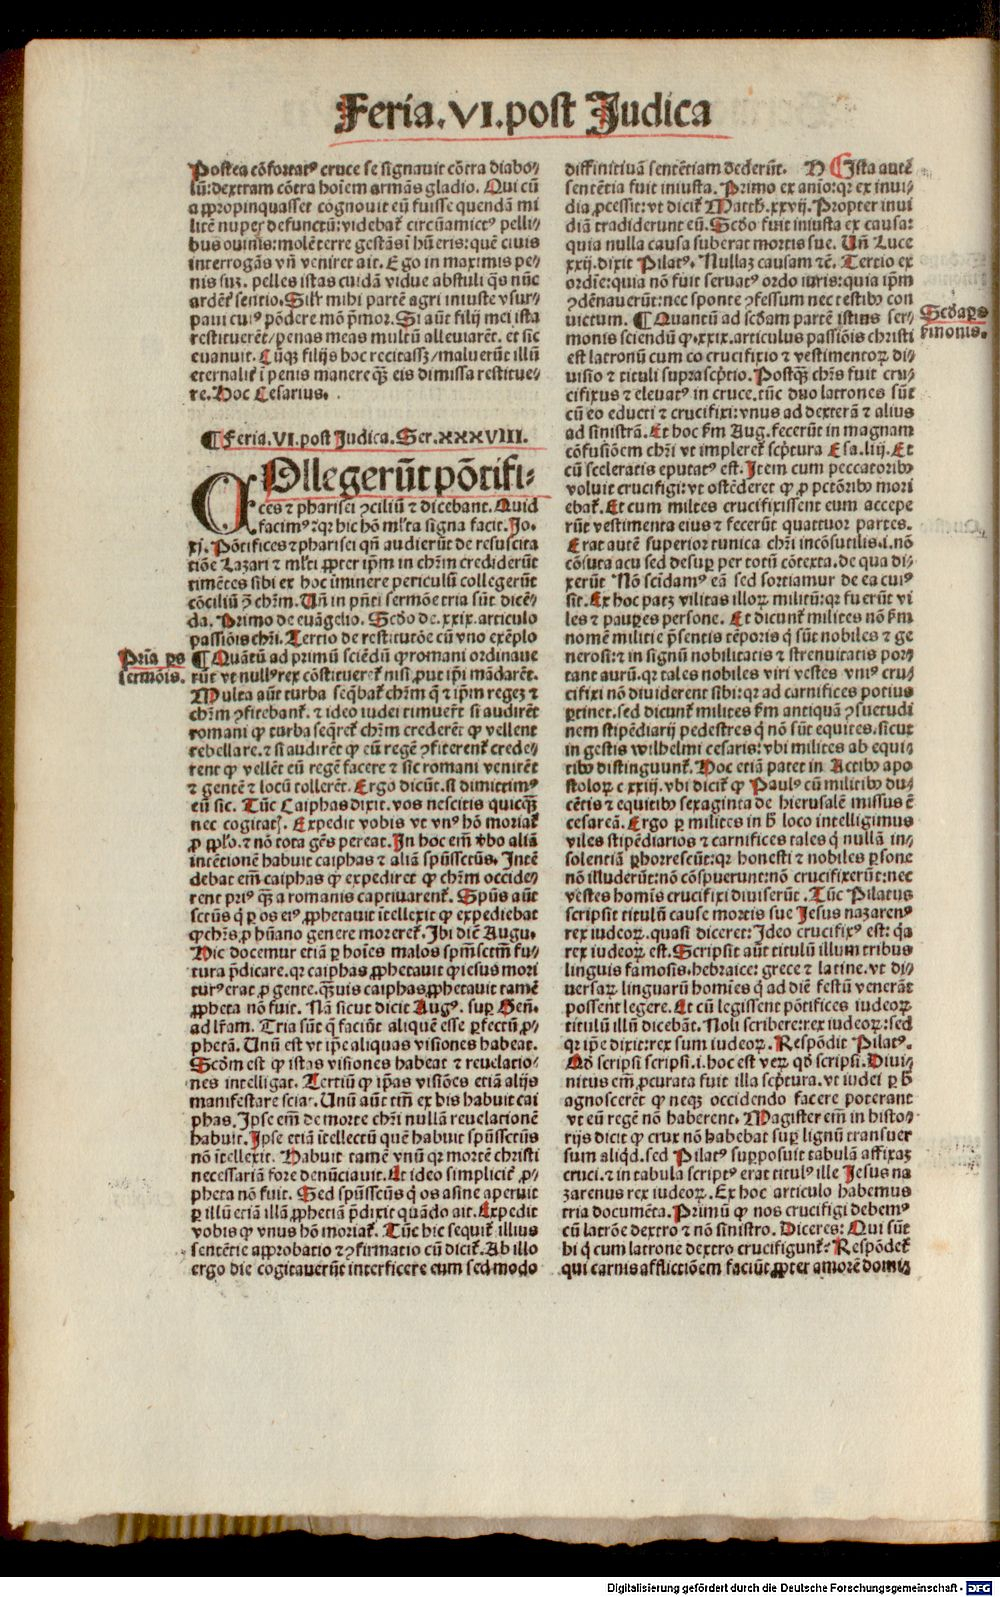 Feria.VI.post Judica
Postea cōfortatꝰ cruce se signauit cōtra diabo-
lū: dextram cōtra hoīem armās gladio. Qui cū
appropinquasset cognouit eū fuisse quendā mi
litē nuper defunctū: videbat̃ circūamictꝰ pelli-
bus ouinis: molē terre gestās ī hūeris: quē ciuis
interrogās vñ veniret ait. Ego in maximis pe-
nis suꝫ. pelles istas cuidā vidue abstuli q̄s nūc
ardētes sentio. Silr mihi partē agri iniuste vsur-
paui cuiꝰ pōdere mō p̄mor. Si aūt filij mei ista
restituerēt/penas meas multū alleuiarēt. et sic
euanuit. Cūqꝫ filijs hoc recitassꝫ/maluerūt illū
eternalit̃ ī penis manere qꝫ eis dimissa restitue-
re. Hoc Cesarius.
¶ Feria.VI.post Judica. Ser.XXXVIII.
COllegerūt pōtifi-
ces ⁊ pharisei ꝯciliū ⁊ dicebant. Quid
facimꝰ: qr hic hō ml̄ta signa facit. Jo.
xj. Pōtifices ⁊ pharisei qñ audierūt de resuscita
tiōe Lazari ⁊ ml̄ti ꝓpter ip̄m in chr̄m crediderūt
timētes sibi ex hoc iminere periculū collegerūt
cōciliū ꝯ̄ chr̄m. Uñ in pñti sermōe tria sūt dicē-
da. Primo de euāgelio. Scd̄o de.xxix.articulo
passiōis chr̄i. Tertio de restitutōe cū vno exēplo
Prīa ps
sermōis.
¶ Quātū ad primū sciēdū ꝙ romani ordinaue
rūt vt nullꝰ rex cōstitueret̃ nisi ꝓut ip̄i mādarēt.
Multa aūt turba seq̄bat̃ chr̄m q̄ ⁊ ip̄m regeꝫ ⁊
chr̄m ꝯfitebant̃. ⁊ ideo iudei timuer̄t si audirēt
romani ꝙ turba seq̄ret̃ chr̄m crederēt ꝙ vellent
rebellare. ⁊ si audirēt ꝙ eū regē ꝯfiterent̃ crede-
rent ꝙ vellēt eū regē facere ⁊ sic romani venirēt
⁊ gentē ⁊ locū tollerēt. Ergo dicūt. si dimittimꝰ
eū sic. Tūc Caiphas dixit. vos nescitis quicqꝫ
nec cogitatꝭ. Expedit vobis vt vnꝰ hō moriat̃
ꝓ pp̄lo. ⁊ nō tota gēs pereat. In hoc em̄ v̄bo aliā
intētionē habuit caiphas ⁊ aliā spūssctūs. Intē
debat em̄ caiphas ꝙ expediret ꝙ chr̄m occide-
rent priꝰ qꝫ a romanis captiuarent̃. Spūs aūt
sctūs q̄ ꝑ os eiꝰ ꝓphetauit ītellexit ꝙ expediebat
ꝙ chr̄s ꝓ hūano genere moreret̃. Ibi dicit Augu.
Hic docemur etiā ꝑ hoīes malos spm̄sctm̄ fu-
tura p̄dicare. qr caiphas ꝓphetauit ꝙ iesus mori
turꝰ erat ꝓ gente. qꝫuis caiphas ꝓphetauit tamē
ꝓpheta nō fuit. Nā sicut dicit Augꝰ. suꝑ Geñ.
ad lr̄am. Tria sūt q̄ faciūt aliquē esse ꝑfectū ꝓ-
phetā. Unū est vt ip̄e aliquas visiones habeat.
Scd̄m est ꝙ istas visiones habeat ⁊ reuelatio-
nes intelligat. Tertiū ꝙ ip̄as visiōes etiā alijs
manifestare sciat. Unū aūt tm̄ ex his habuit cai
phas. Ipse em̄ de morte chr̄i nullā reuelationē
habuit. Ipse etiā ītellectū quē habuit spūssctūs
nō ītellexit. Habuit tamē vnū qr mortē christi
necessariā fore denūciauit. Et ideo simplicit̃ ꝓ-
pheta nō fuit. Sed spūssctūs q̄ os asine aperuit
ꝑ illū etiā illā ꝓphetiā p̄dixit quādo ait. Expedit
vobis ꝙ vnus hō moriat̃. Tūc hic sequit̃ illius
sentētie approbatio ⁊ ꝯfirmatio cū dicit̃. Ab illo
ergo die cogitauerūt interficere eum sed modo
diffinitiuā sentētiam dederūt. D ¶ Ista autē
sentētia fuit iniusta. Primo ex aīo: qr ex inui-
dia ꝓcessit: vt dicit̃ Matth.xxvij. Propter inui
diā tradiderunt eū. Scd̄o fuit iniusta ex causa:
quia nulla causa suberat mortis sue. Uñ Luce
xxij. dixit Pilatꝰ. Nullaꝫ causam ⁊c̄. Tertio ex
ordīe: quia nō fuit seruatꝰ ordo iuris: quia ip̄m
ꝯdēnauerūt: nec sponte ꝯfessum nec testibꝰ con
uictum. ¶ Quantū ad scd̄am partē istius ser-
Scd̄a ps
sermonis.
monis sciendū ꝙ.xxix.articulus passiōis christi
est latronū cum eo crucifixio ⁊ vestimentoꝝ di-
uisio ⁊ tituli suprascp̄tio. Postqꝫ chr̄s fuit cru-
cifixus ⁊ eleuatꝰ in cruce. tūc duo latrones sūt
cū eo educti ⁊ crucifixi: vnus ad dexterā ⁊ alius
ad sinistrā. Et hoc fm̄ Aug. fecerūt in magnam
cōfusiōem chr̄i vt impleret̃ scp̄tura Esa.liij. Et
cū sceleratis eputatꝰ est. Item cum peccatoribꝰ
voluit crucifigi: vt ostēderet ꝙ ꝓ pctōribꝰ mori
ebat̃. Et cum milites crucifixissent eum accepe
rūt vestimenta eius ⁊ fecerūt quattuor partes.
Erat autē superior tunica chr̄i incōsutilis.i.nō
cōsuta acu sed desuꝑ per totū cōtexta. de qua di-
xerūt Nō scīdamꝰ eā sed sortiamur de ea cuiꝰ
sit. Ex hoc patꝫ vilitas illoꝝ militū: qr fuerūt vi
les ⁊ pauꝑes persone. Et dicunt̃ milites nō fm̄
nomē militie p̄sentis tēporis q̄ sūt nobiles ⁊ ge
nerosi: ⁊ in signū nobilitatis ⁊ strenuitatis por-
tant aurū. qr tales nobiles viri vestes vniꝰ cru-
cifixi nō diuiderent sibi: qr ad carnifices potius
ꝑtinet. sed dicunt̃ milites fm̄ antiquā ꝯsuetudi
nem stipēdiarij pedestres q̄ nō sūt equites. sicut
in gestis wilhelmi cesaris: vbi milites ab equi-
tibꝰ distinguunt̃. Hoc etiā patet in Actibꝰ apo
stoloꝝ c xxiij. vbi dicit̃ ꝙ Paulꝰ cū militibꝰ du-
cētis ⁊ equitibꝰ sexaginta de hierusalē missus ē
cesareā. Ergo ꝑ milites in h̄ loco intelligimus
viles stipēdiarios ⁊ carnifices tales q̄ nullā in-
solentiā ꝑhorrescūt: qr honesti ⁊ nobiles ꝑsone
nō illuderūt: nō cōspuerunt: nō crucifixerūt: nec
vestes homīs crucifixi diuiserūt. Tūc Pilatus
scripsit titulū cause mortis sue Jesus nazarenꝰ
rex iudeoꝝ. quasi diceret: Ideo crucifixꝰ est: q̄a
rex iudeoꝝ est. Scripsit aūt titulū illum tribus
linguis famosis. hebraice: grece ⁊ latine. vt di-
uersaꝝ linguarū homīes q̄ ad diē festū venerāt
possent legere. Et cū legissent pōtifices iudeoꝝ
titulū illū dicebāt. Noli scribere: rex iudeoꝝ: sed
qr ip̄e dixit: rex sum iudeoꝝ. Respōdit Pilatꝰ.
Qd̄ scripsi scripsi.i.hoc est veꝝ qd̄ scripsi. Diui-
nitus em̄ ꝓcurata fuit illa scp̄tura. vt iudei ꝑ h̄
agnoscerēt ꝙ neqꝫ occidendo facere poterant
vt eū regē nō haberent. Magister em̄ in histo-
rijs dicit ꝙ crux nō habebat suꝑ lignū transuer
sum aliq̄d. sed Pilatꝰ suꝑposuit tabulā affixaꝫ
cruci. ⁊ in tabula scriptꝰ erat titulꝰ ille Jesus na
zarenus rex iudeoꝝ. Ex hoc articulo habemus
tria documēta. Primū ꝙ nos crucifigi debemꝰ
cū latrōe dextro ⁊ nō sinistro. Diceres: Qui sūt
hi q̄ cum latrone dextro crucifigunt̃: Respōdet̃
qui carnis afflictiōem faciūt ꝓpter amorē domi
Digitalisierung gefördert durch die Deutsche Forschungsgemeinschaft - DFG